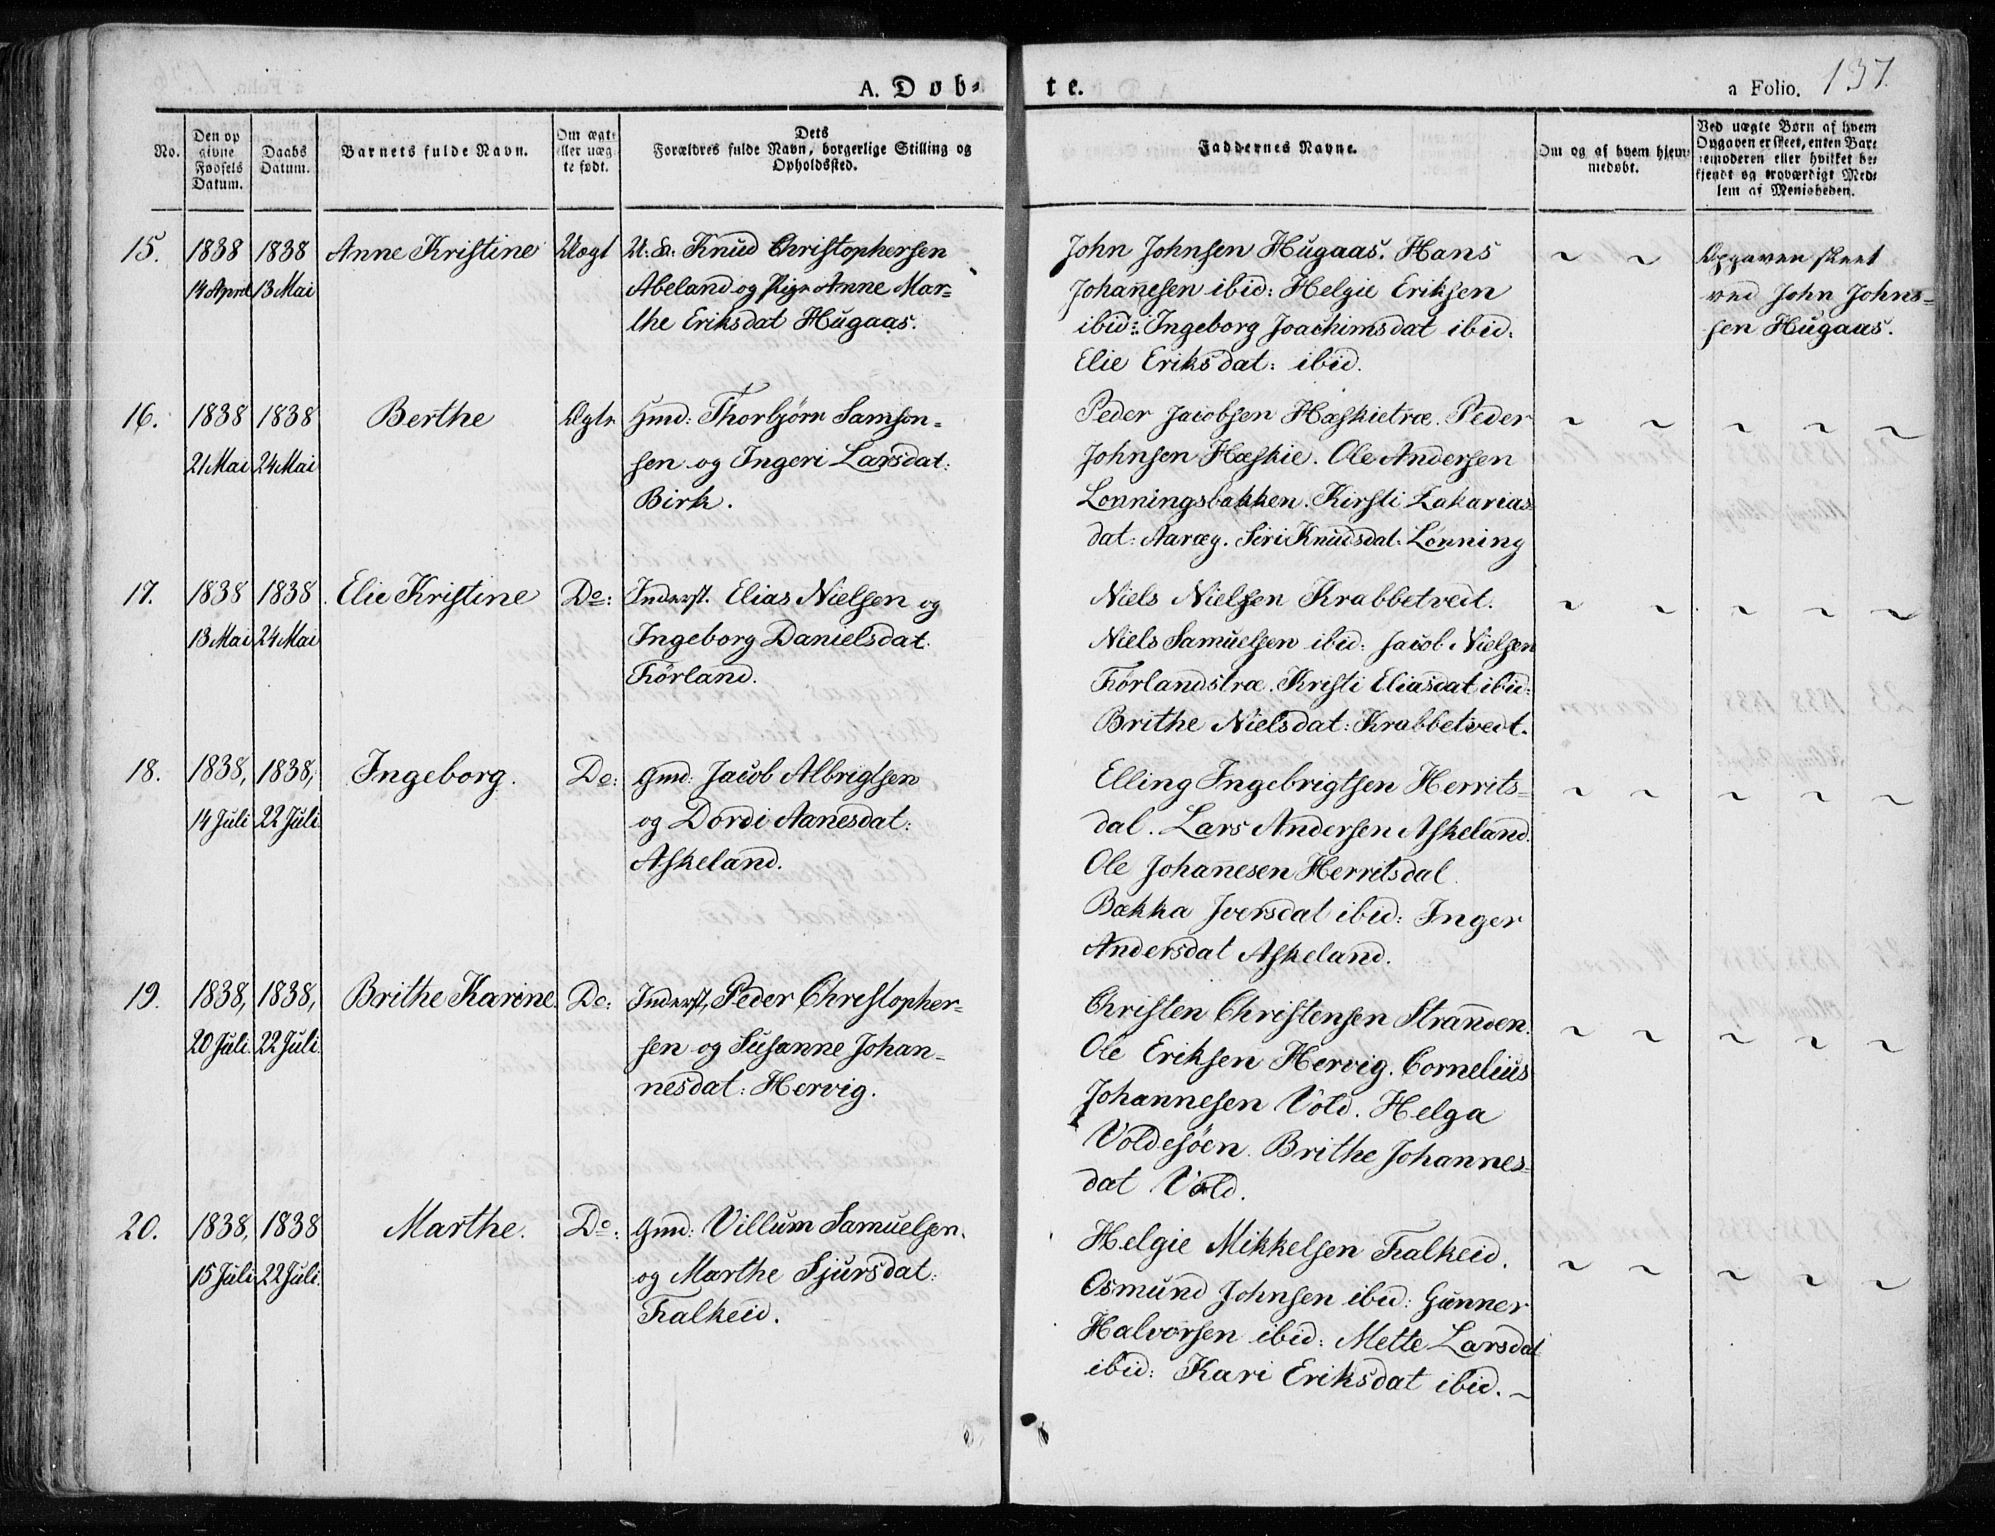 A. Døb-
te.
a Folio. 137.
No.
Den op
givne
Fødsels
Datum.
Daabs
Datum.
Barnets fulde Navn.
Om ægte
eller uæg-
te født.
Dets
Forældres fulde Navn, borgerlige Stilling og
Opholdssted.
Faddernes Navne.
Om og af hvem hjem-
medøbt.
Ved uægte Børn af hvem
Opgaven er skeet, enten Bar-
nemoderen eller hvilket be-
kjendt og troværdigt Med-
lem af Menigheden.
15. 1838 1838 Anne Kristine Uægt U: K: Knud Christophersen
14 April 13 Mai Abeland og Pige Anne Mar-
the Eriksdat Hugaas.
John Johnsen Hugaas. Hans
Johanesen ibid: Helgie Eriksen
ibid: Ingeborg Joachimsdat ibid:
Elie Eriksdat: ibid.
~ ~
Opgaven skeet
ved John Johns-
sen Hugaas.
16. 1838 1838 Berthe Ægte Gmd: Thorbjørn Samson-
21 Mai 24 Mai sen og Ingeri Larsdat:
Birk.
Peder Jacobsen Hæskietræ. Peder
Johnsen Hæskie. Ole Andersen
Lonningsbakken. Kirsti Zakarias-
dat: Aaræg. Siri Knudsdat: Lonning
~ ~ ~ ~ ~
17. 1838 1838 Elie Kristine Do: Inderst. Elias Nielsen og
13 Mai 24 Mai Ingeborg Danielsdat.
Førland.
Niels Nielsen Krabbetvedt.
Niels Samuelsen ibid: Jacob Nielsen
Førlandstræ. Kristi Eliasdat ibid:
Brithe Nielsdat: Krabbetvedt.
~ ~ ~ ~ ~
18. 1838, 1838, Ingeborg. Do: Gmd: Jacob Albrigtsen
14 Juli 22 Juli. og Dordi Aanesdat:
Askeland.
Elling Ingebrigtsen Herrits-
dal. Lars Andersen Askeland.
Ole Johannesen Herritsdal.
Bækka Iversdat ibid: Inger
Andersdat Askeland.
~ ~ ~ ~ ~
19. 1838, 1838, Brithe Karine. Do: Inderst, Peder Christopher-
20 Juli. 22 Juli. sen og Susanne Johan-
nesdat: Hervig.
Christen Christensen Stranden.
Ole Eriksen Hervig. Cornelius
Johannesen Vold. Helga
Voldesøen. Brithe Johannes-
dat Vold.
~ ~ ~ ~ ~
20. 1838, 1838 Marthe. Do: Gmd: Villum Samuelsen.
15 Juli 22 Juli. og Marthe Sjursdat:
Falkeid.
Helgie Mikkelsen Falkeid.
Osmund Johnsen ibid: Gunner
Halvorsen ibid: Mette Larsdat
ibid: Kari Eriksdat ibid. ~
~ ~ ~ ~ ~